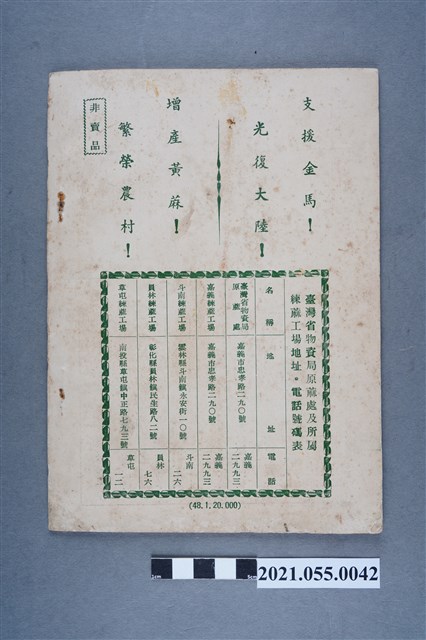 支援金馬！
光復大陸！
增產黃蔴！
繁榮農村！
非賣品
臺灣省物資局原蔴處及所屬
練蔴工場地址・電話號碼表
名稱 地址 電話
臺灣省物資局原蔴處 嘉義市忠孝路二九〇號 嘉義二九九三
嘉義練蔴工場 嘉義市忠孝路二九〇號 嘉義二九九三
斗南練蔴工場 雲林縣斗南鎮永安街一〇號 斗南二六
員林練蔴工場 彰化縣員林鎮民生路八二號 員林七六
草屯練蔴工場 南投縣草屯鎮中正路七九三號 草屯一二
(48.1.20.000)
1cm
5cm
2021.055.0042